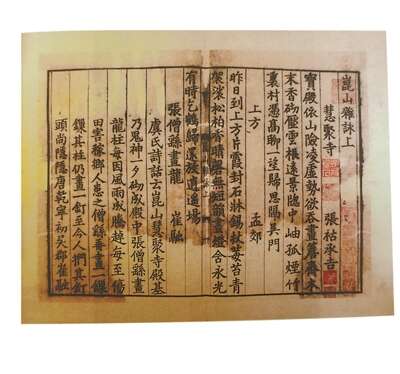 崑山雜詠上
慧聚寺 張祜承吉
寶殿依山險凌虛勢欲吞畫簷齊木
末香砌壓雲根遠景牕中岫孤煙竹
裏村憑高聊一望歸思隔吳門
上方 孟郊
昨日到上方片霞封石牀錫杖莓苔青
袈裟松柏香晴磬無短韻晝燈含永光
有時乞鶴歸還放逍遥場
張僧繇畫龍 崔融
虞氏詩話云崑山慧聚寺殿基
乃鬼神一夕砌成殿中張僧繇畫
龍柱每因風雨或騰趨每至傷
田害稼鄉人患之僧繇再畫一鏁
鏁其柱仍畫一釘至今人捫其釘
頭尚隱隱唐乾寧初吳郡崔融